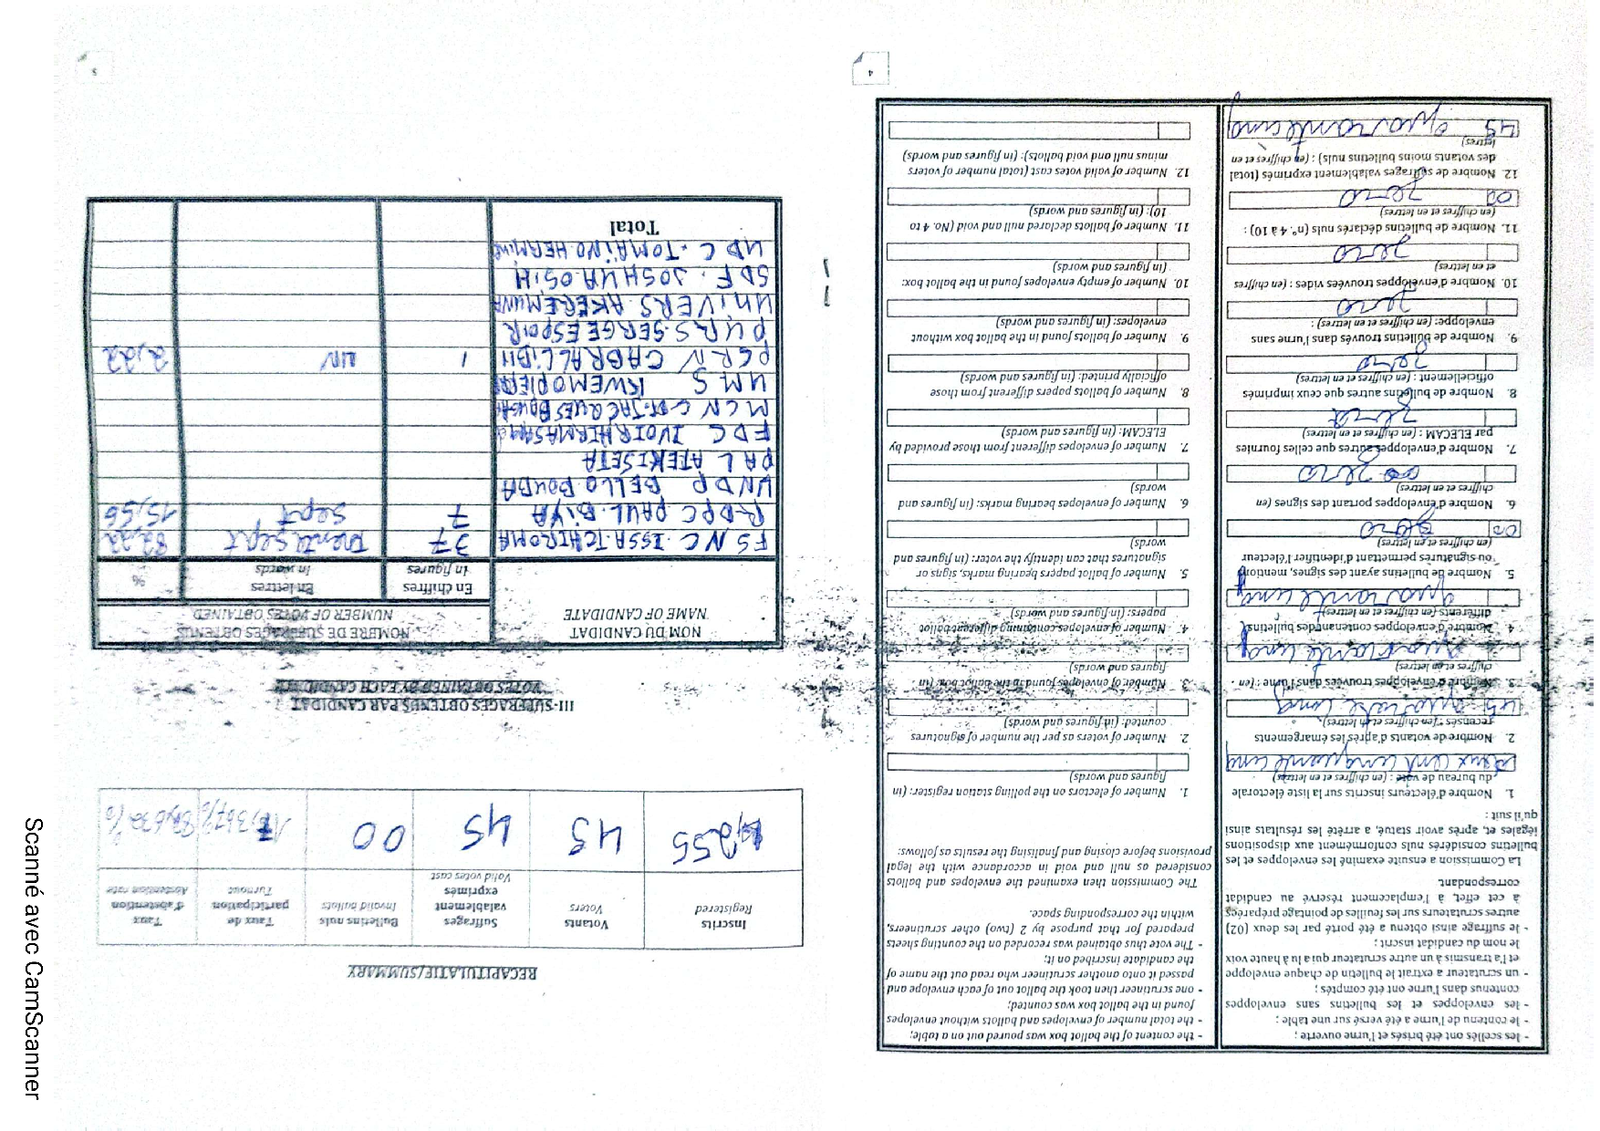 - les scellés ont été brisés et l'urne ouverte ;
- le contenu de l'urne a été versé sur une table ;
- les enveloppes et les bulletins sans enveloppes
contenus dans l'urne ont été comptés ;
- un scrutateur a extrait le bulletin de chaque enveloppe
et l'a transmis à un autre scrutateur qui a lu à haute voix
le nom du candidat inscrit ;
- le suffrage ainsi obtenu a été porté par les deux (02)
autres scrutateurs sur les feuilles de pointage préparées
à cet effet, à l'emplacement réservé au candidat
correspondant.
La Commission a ensuite examiné les enveloppes et les
bulletins considérés nuls conformément aux dispositions
légales et, après avoir statué, a arrêté les résultats ainsi
qu'il suit :
1. Nombre d'électeurs inscrits sur la liste électorale
du bureau de vote : (en chiffres et en lettres)
deux cent cinquante cinq
2. Nombre de votants d'après les émargements
recensés : (en chiffres et en lettres)
45 quarante cinq
3. Nombre d'enveloppes trouvées dans l'urne : (en
chiffres et en lettres)
quarante cinq
4. Nombre d'enveloppes contenant des bulletins
différents (en chiffres et en lettres)
quarante cinq
5. Nombre de bulletins ayant des signes, mentions
ou signatures permettant d'identifier l'électeur
(en chiffres et en lettres)
00 zero
6. Nombre d'enveloppes portant des signes (en
chiffres et en lettres)
00 zero
7. Nombre d'enveloppes autres que celles fournies
par ELECAM : (en chiffres et en lettres)
zero
8. Nombre de bulletins autres que ceux imprimés
officiellement : (en chiffres et en lettres)
zero
9. Nombre de bulletins trouvés dans l'urne sans
enveloppe: (en chiffres et en lettres) :
zero
10. Nombre d'enveloppes trouvées vides : (en chiffres
et en lettres)
zero
11. Nombre de bulletins déclarés nuls (n°. 4 à 10) :
(en chiffres et en lettres)
00 zero
12. Nombre de suffrages valablement exprimés (total
des votants moins bulletins nuls) : (en chiffres et en
lettres)
45 quarante cinq
- the content of the ballot box was poured out on a table;
- the total number of envelopes and ballots without envelopes
found in the ballot box was counted;
- one scrutineer then took the ballot out of each envelope and
passed it onto another scrutineer who read out the name of
the candidate inscribed on it;
- The vote thus obtained was recorded on the counting sheets
prepared for that purpose by 2 (two) other scrutineers,
within the corresponding space.
The Commission then examined the envelopes and ballots
considered as null and void in accordance with the legal
provisions before closing and finalising the results as follows:
1. Number of electors on the polling station register: (in
figures and words)
2. Number of voters as per the number of signatures
counted: (in figures and words)
3. Number of envelopes found in the ballot box: (in
figures and words)
4. Number of envelopes containing different ballot
papers: (in figures and words)
5. Number of ballot papers bearing marks, signs or
signatures that can identify the voter: (in figures and
words)
6. Number of envelopes bearing marks: (in figures and
words)
7. Number of envelopes different from those provided by
ELECAM: (in figures and words)
8. Number of ballots papers different from those
officially printed: (in figures and words)
9. Number of ballots found in the ballot box without
envelopes: (in figures and words)
10. Number of empty envelopes found in the ballot box:
(in figures and words)
11. Number of ballots declared null and void (No. 4 to
10): (in figures and words)
12. Number of valid votes cast (total number of voters
minus null and void ballots): (in figures and words)
4
RECAPITULATIF/SUMMARY
Inscrits Registered
Votants Voters
Suffrages valablement exprimés Valid votes cast
Bulletins nuls Invalid ballots
Taux de participation Turnout
Taux d'abstention Abstention rate
255 45 45 00
III-SUFFRAGES OBTENUS PAR CANDIDAT
VOTES OBTAINED BY EACH CANDIDATE
NOM DU CANDIDAT NAME OF CANDIDATE
NOMBRE DE SUFFRAGES OBTENUS
NUMBER OF VOTES OBTAINED
En chiffres In figures
En lettres In words
%
FSNC ISSA TCHIROMA 37 Trente sept 82,22
RDPC PAUL BIYA 7 sept 15,56
UNDP BELLO BOUBA
PAL ATEKI SETA
FDC IVOIR HERMAS
MCNC JACQUES
UMS KWEMO PIERRE
PCRN CABRAL LIBII 1 UN 2,22
PURS SERGE ESPOIR
UNIVERS AKERE MUNA
SDF JOSHUA OSIH
UDC TOMAINO HERMINE
Total
5
Scanné avec CamScanner